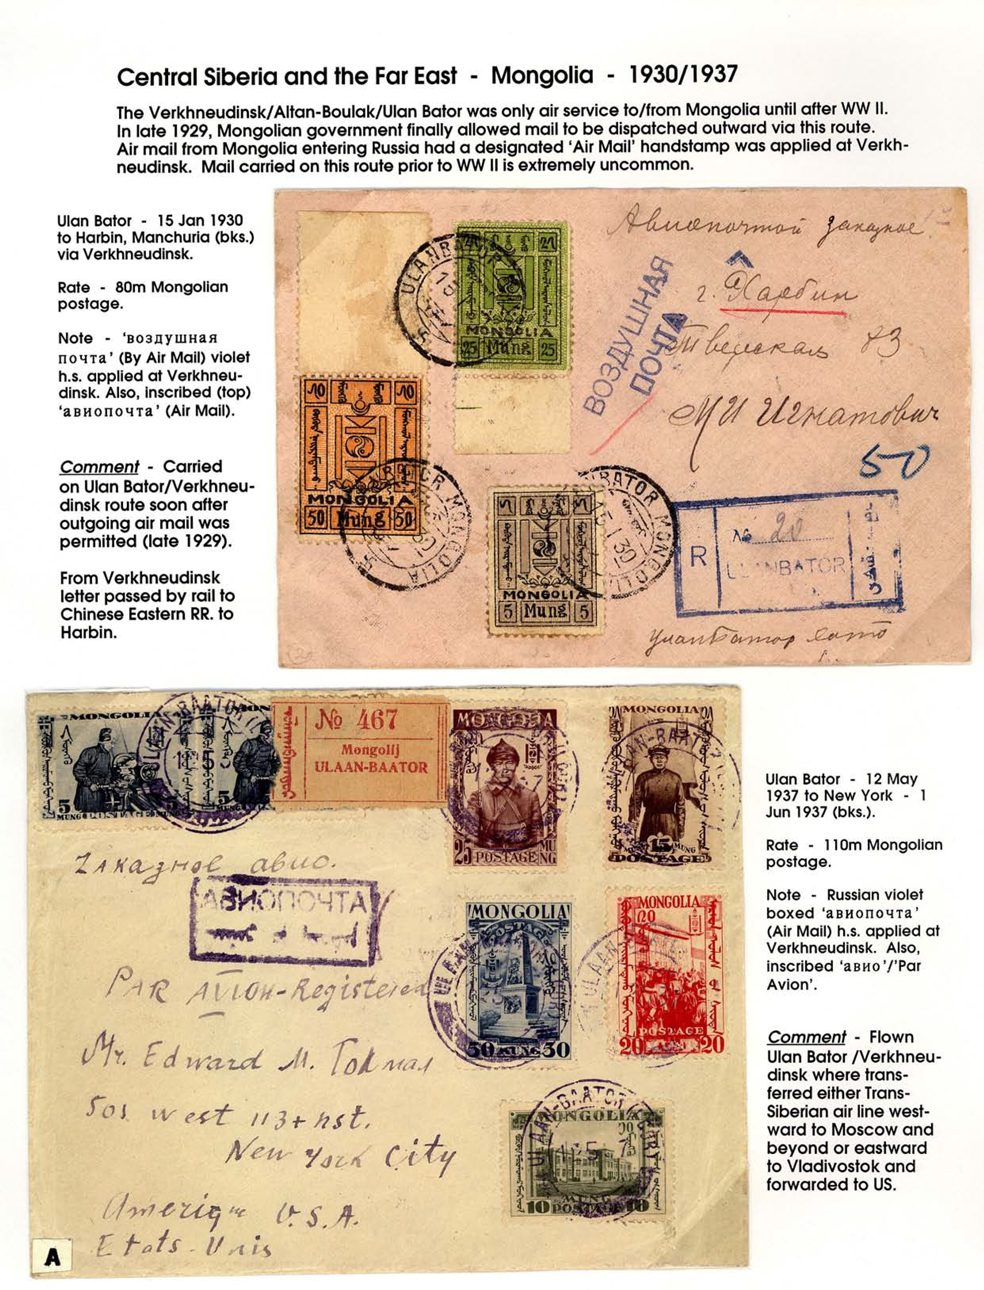 Central Siberia and the Far East - Mongolia - 1930/1937
The Verkhneudinsk/Altan-Boulak/Ulan Bator was only air service to/from Mongolia until after WW II.
In late 1929, Mongolian government finally allowed mail to be dispatched outward via this route.
Air mail from Mongolia entering Russia had a designated 'Air Mail' handstamp was applied at Verkh-
neudinsk. Mail carried on this route prior to WW II is extremely uncommon.
Ulan Bator - 15 Jan 1930
to Harbin, Manchuria (bks.)
via Verkhneudinsk.
Rate - 80m Mongolian
postage.
Note - 'воздушная
почта' (By Air Mail) violet
h.s. applied at Verkhneu-
dinsk. Also, inscribed (top)
'авиопочта' (Air Mail).
Comment - Carried
on Ulan Bator/Verkhneu-
dinsk route soon after
outgoing air mail was
permitted (late 1929).
From Verkhneudinsk
letter passed by rail to
Chinese Eastern RR. to
Harbin.
Авиопочтой заказное
г. Харбин
83
МИ Игнатович
50
ВОЗДУШНАЯ
ПОЧТА
ULANBATOR
MONGOLIA
25 Mung 25
MONGOLIA
50 Mung 50
ULANBATOR MONGOLIA
ULANBATOR MONGOLIA
MONGOLIA
5 Mung 5
R
№ 20
ULANBATOR
MONGOLIA
5
5
№ 467
Mongolij
ULAAN-BAATOR
MONGOLIA
25 POSTAGE
MONGOLIA
15 MUNG
POSTAGE
Zаказное авио.
АВИОПОЧТА
PAR AVION-Registered
Mr. Edward M.
501 West 113th st.
New York City
Amerique U.S.A.
Etats-Unis
MONGOLIA
POSTAGE
50 MUNG 50
MONGOLIA
20
POSTAGE
20 20
ULAAN-BAATOR
MONGOLIA
MUNG
10 POSTAGE 10
A
Ulan Bator - 12 May
1937 to New York - 1
Jun 1937 (bks.).
Rate - 110m Mongolian
postage.
Note - Russian violet
boxed 'авиопочта'
(Air Mail) h.s. applied at
Verkhneudinsk. Also,
inscribed 'авио'/'Par
Avion'.
Comment - Flown
Ulan Bator /Verkhneu-
dinsk where trans-
ferred either Trans-
Siberian air line west-
ward to Moscow and
beyond or eastward
to Vladivostok and
forwarded to US.